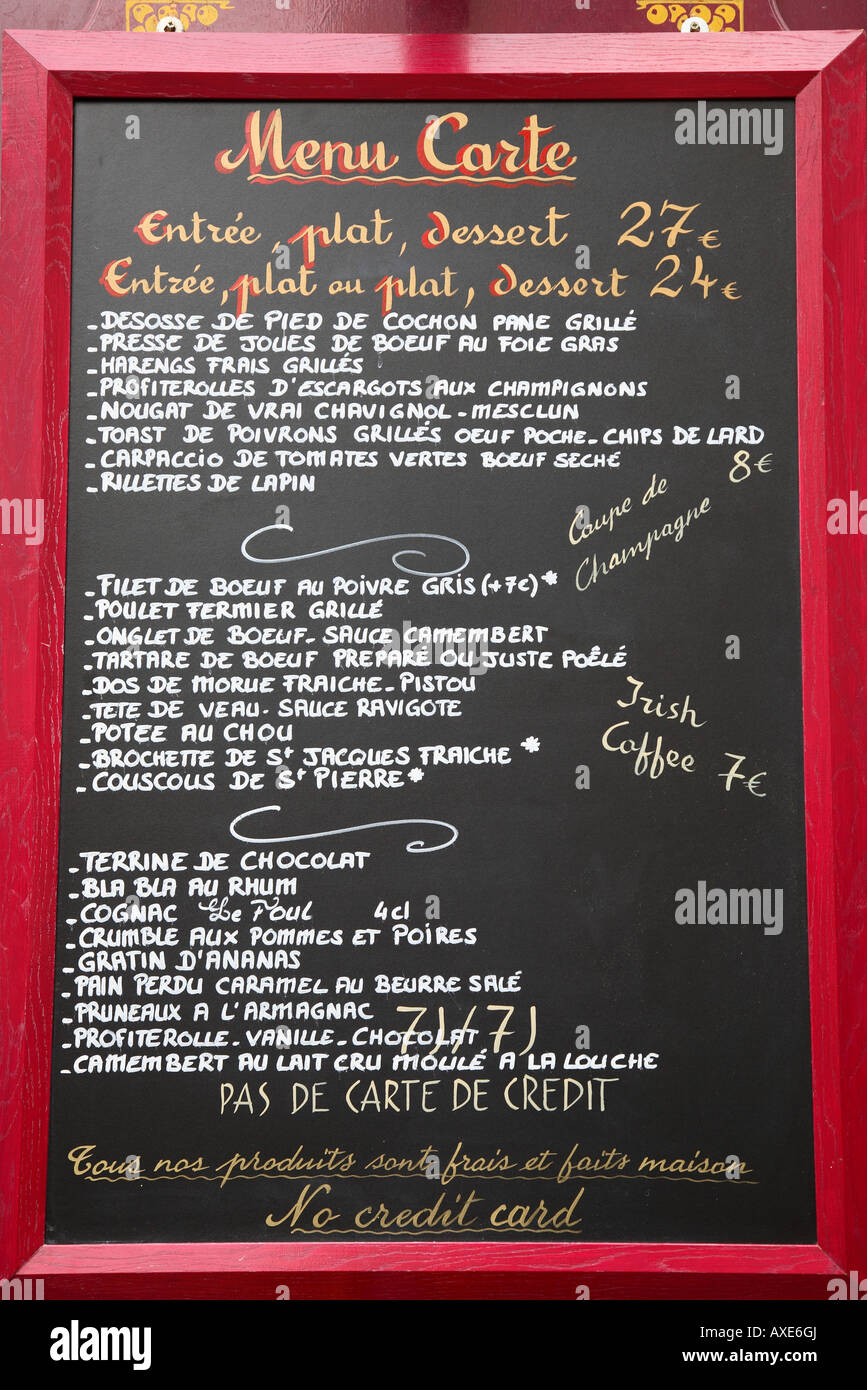 Menu Carte
Entrée, plat, dessert 27€
Entrée, plat ou plat, dessert 24€
-DESOSSE DE PIED DE COCHON PANE GRILLÉ
-PRESSE DE JOUES DE BOEUF AU FOIE GRAS
-HARENGS FRAIS GRILLÉS
-PROFITEROLLES D'ESCARGOTS AUX CHAMPIGNONS
-NOUGAT DE VRAI CHAVIGNOL-MESCLUN
-TOAST DE POIVRONS GRILLÉS OEUF POCHE-CHIPS DE LARD
-CARPACCIO DE TOMATES VERTES BOEUF SECHÉ
-RILLETTES DE LAPIN
Coupe de 8€
Champagne
-FILET DE BOEUF AU POIVRE GRIS (+7€)*
-POULET FERMIER GRILLÉ
-ONGLET DE BOEUF-SAUCE CAMEMBERT
-TARTARE DE BOEUF PREPARÉ OU JUSTE POÊLÉ
-DOS DE MORUE FRAICHE-PISTOU
-TETE DE VEAU-SAUCE RAVIGOTE
-POTEE AU CHOU
-BROCHETTE DE St JACQUES FRAICHE *
-COUSCOUS DE St PIERRE*
Irish
Coffee 7€
-TERRINE DE CHOCOLAT
-BLA BLA AU RHUM
-COGNAC Le Foul 4cl
-CRUMBLE AUX POMMES ET POIRES
-GRATIN D'ANANAS
-PAIN PERDU CARAMEL AU BEURRE SALÉ
-PRUNEAUX A L'ARMAGNAC
7J/7J
-PROFITEROLLE-VANILLE-CHOCOLAT
-CAMEMBERT AU LAIT CRU MOULÉ A LA LOUCHE
PAS DE CARTE DE CREDIT
Tous nos produits sont frais et faits maison
No credit card
alamy
Image ID: AXE6GJ
www.alamy.com